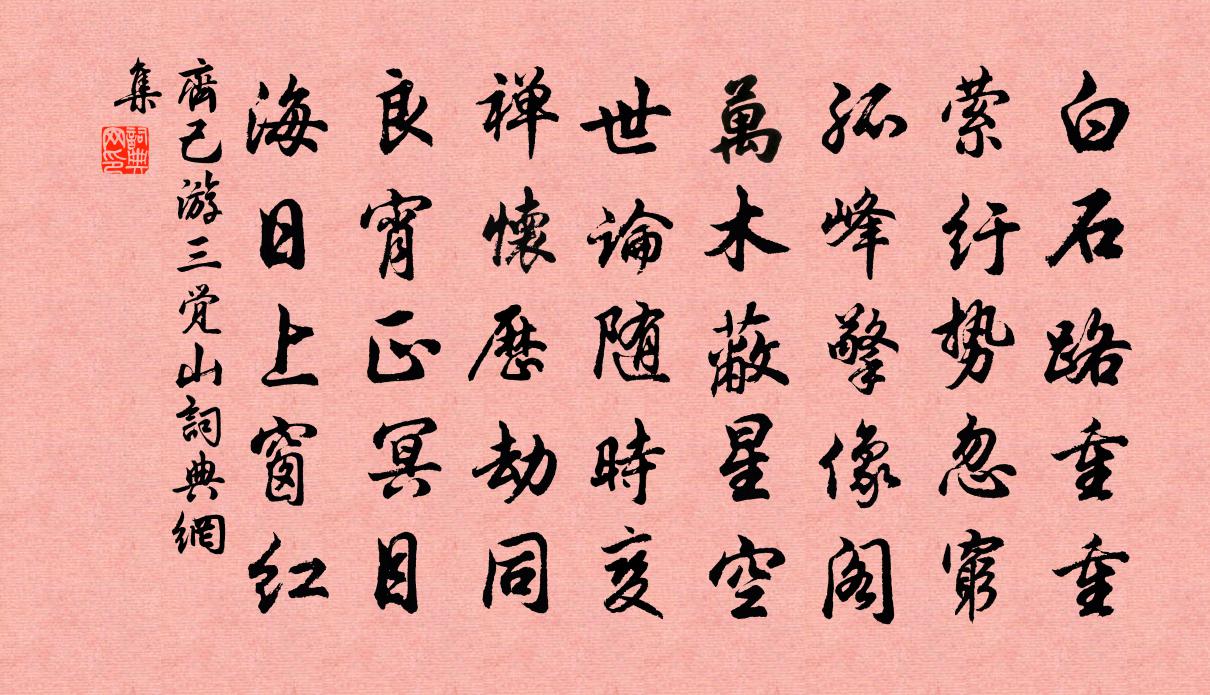 白石路重重
萦纡势忽窮
孤峰擎像阁
萬木蔽星空
世論随時变
禅懷歷劫同
良宵正冥目
海日上窗红
齊己游三觉山詞典網
集
詞典
网印